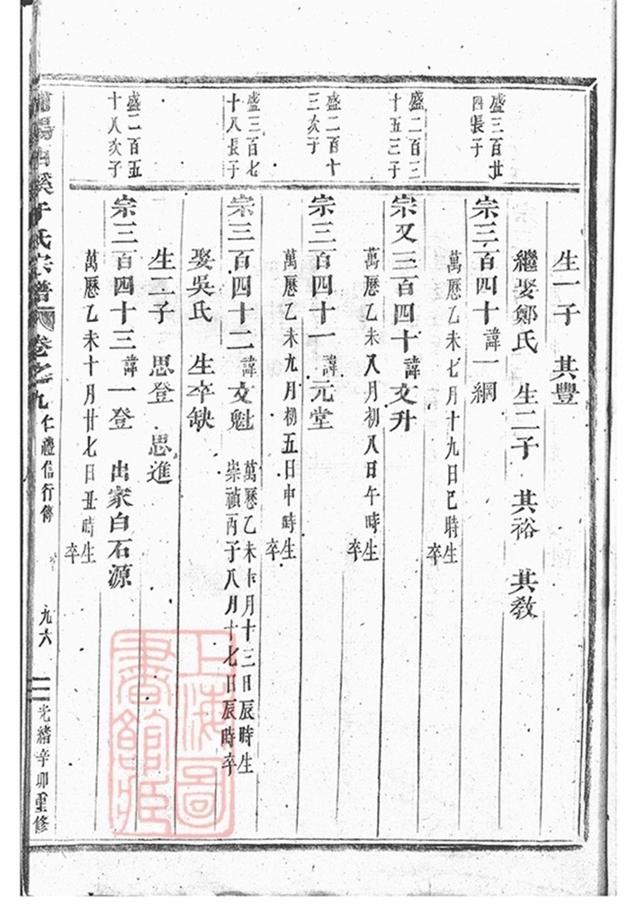 生一子 其豐
繼娶鄭氏 生二子 其裕 其教
盛三百廿
四長子
宗三百四十諱一綱
萬曆乙未七月十九日巳時生
卒
盛二百三
十五三子
宗又三百四十諱文升
萬曆乙未八月初八日午時生
卒
盛二百十
三次子
宗三百四十一諱元堂
萬曆乙未九月初五日申時生
卒
盛三百七
十八長子
宗三百四十二諱文魁
萬曆乙未十月十三日辰時生
崇禎丙子八月十七日辰時卒
娶吳氏 生卒缺
生二子 思登 思進
盛二百五
十八次子
宗三百四十三諱一登 出家白石源
萬曆乙未十月廿七日丑時生
卒
陽 溪于氏宗譜
卷之九
仁禮信行傳
九六
光緒辛卯重修
上海圖書館藏